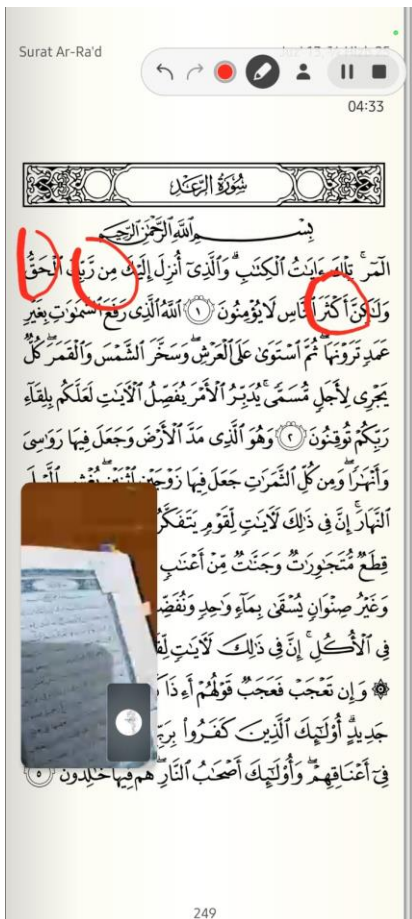 Surat Ar-Ra'd
04:33
سُورَةُ الرَّعْدِ
بِسْمِ اللَّهِ الرَّحْمَٰنِ الرَّحِيمِ
الٓمٓر ۚ تِلْكَ ءَايَٰتُ ٱلْكِتَٰبِ ۗ وَٱلَّذِىٓ أُنزِلَ إِلَيْكَ مِن رَّبِّكَ ٱلْحَقُّ
وَلَٰكِنَّ أَكْثَرَ ٱلنَّاسِ لَا يُؤْمِنُونَ ١ ٱللَّهُ ٱلَّذِى رَفَعَ ٱلسَّمَٰوَٰتِ بِغَيْرِ
عَمَدٍ تَرَوْنَهَا ۖ ثُمَّ ٱسْتَوَىٰ عَلَى ٱلْعَرْشِ ۖ وَسَخَّرَ ٱلشَّمْسَ وَٱلْقَمَرَ ۖ كُلٌّ
يَجْرِى لِأَجَلٍ مُّسَمًّى ۚ يُدَبِّرُ ٱلْأَمْرَ يُفَصِّلُ ٱلْءَايَٰتِ لَعَلَّكُم بِلِقَآءِ
رَبِّكُمْ تُوقِنُونَ ٢ وَهُوَ ٱلَّذِى مَدَّ ٱلْأَرْضَ وَجَعَلَ فِيهَا رَوَٰسِىَ
وَأَنْهَٰرًا ۖ وَمِن كُلِّ ٱلثَّمَرَٰتِ جَعَلَ فِيهَا زَوْجَيْنِ ٱثْنَيْنِ ۖ يُغْشِى ٱلَّيْلَ
ٱلنَّهَارَ ۚ إِنَّ فِى ذَٰلِكَ لَءَايَٰتٍ لِّقَوْمٍ يَتَفَكَّرُ
قِطَعٌ مُّتَجَٰوِرَٰتٌ وَجَنَّٰتٌ مِّنْ أَعْنَٰبٍ
وَغَيْرُ صِنْوَانٍ يُسْقَىٰ بِمَآءٍ وَٰحِدٍ وَنُفَضِّ
فِى ٱلْأُكُلِ ۚ إِنَّ فِى ذَٰلِكَ لَءَايَٰتٍ
۞ وَإِن تَعْجَبْ فَعَجَبٌ قَوْلُهُمْ أَءِذَا
جَدِيدٍ ۗ أُو۟لَٰٓئِكَ ٱلَّذِينَ كَفَرُوا۟
فِىٓ أَعْنَاقِهِمْ ۖ وَأُو۟لَٰٓئِكَ أَصْحَٰبُ ٱلنَّارِ ۖ هُمْ فِيهَا خَٰلِدُونَ ٥
249